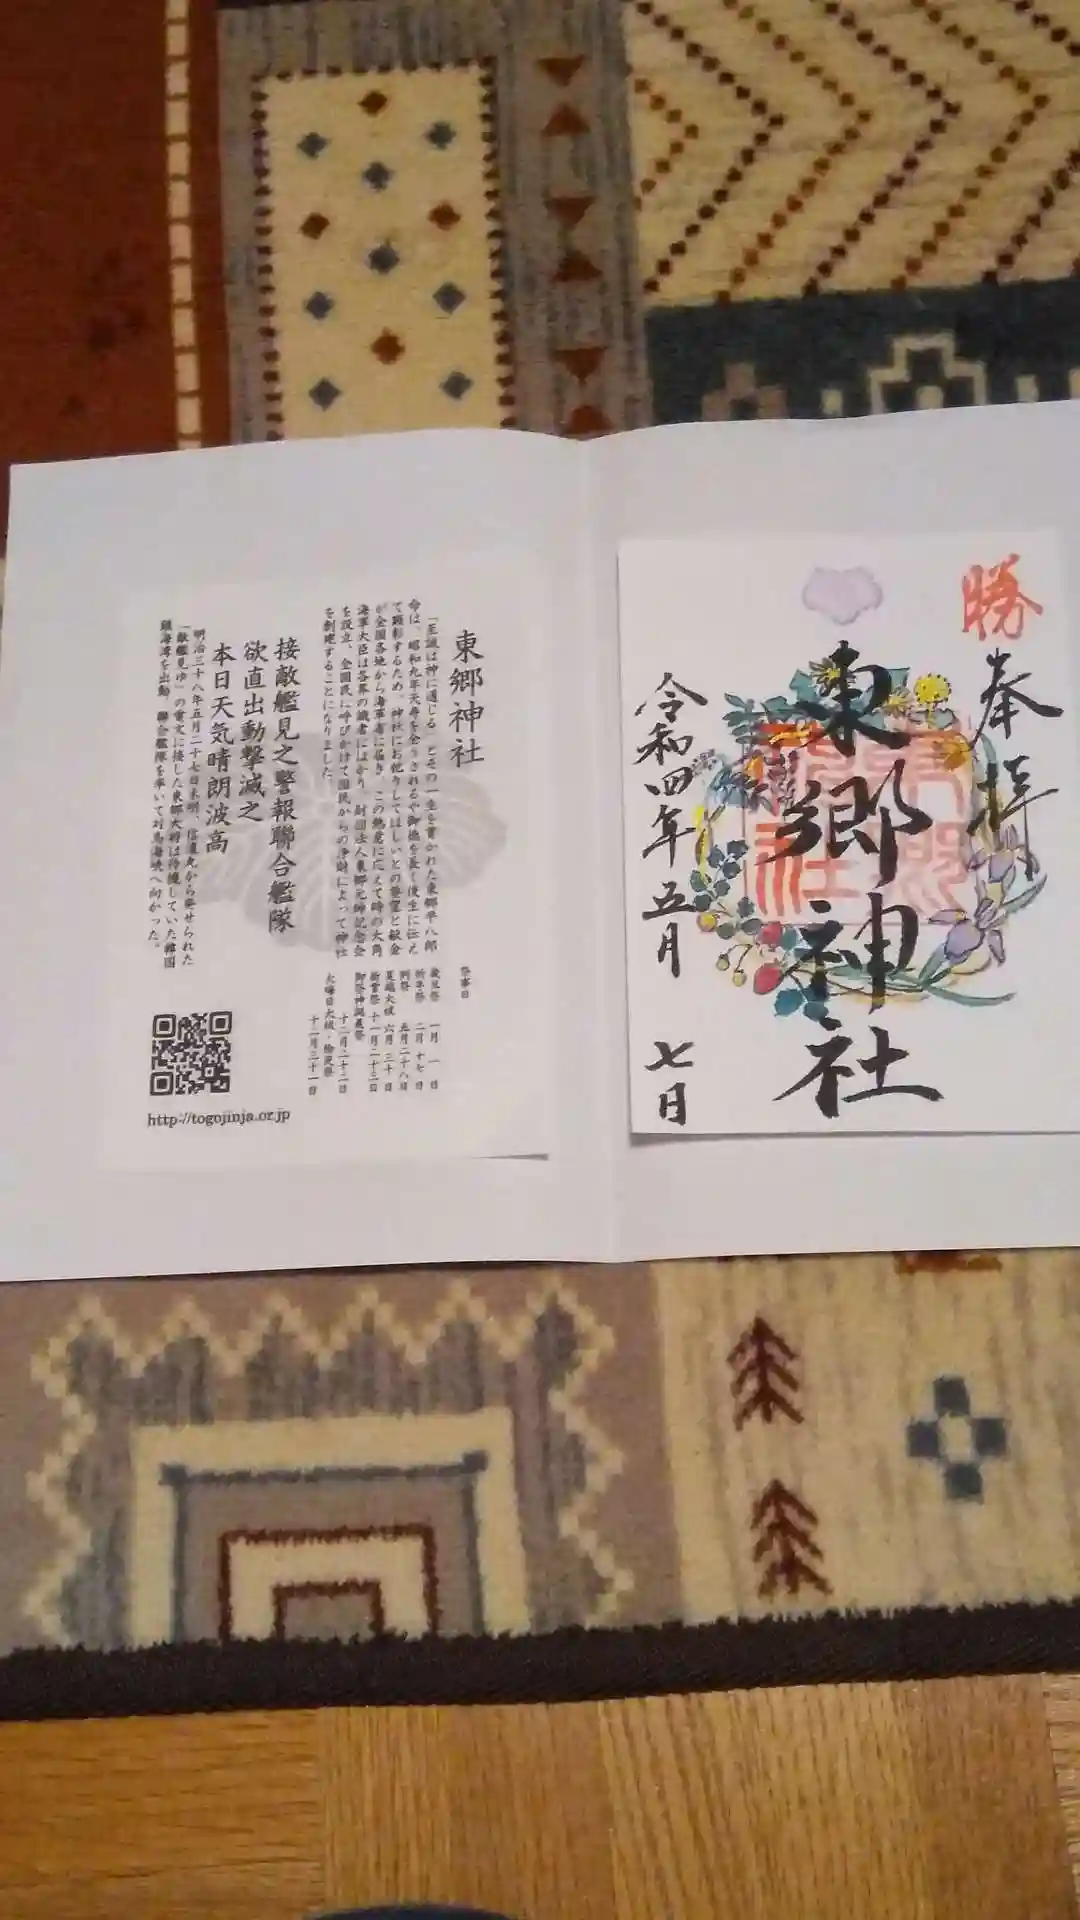 勝
奉拝
東郷神社
令和四年 五月 七日
東郷神社
「至誠は神に通じる」とその一生を貫かれた東郷平八郎
命は、昭和九年天寿を全うされるや御徳を長く後生に伝え
て顕彰するため、神社にお祀りしてほしいとの要望と献金
が全国各地から海軍省に届き、この熱意に応えて時の大角
海軍大臣は各界の識者にはかり、財団法人東郷元帥記念会
を設立、全国民に呼びかけて国民からの浄財によって神社
を創建することになりました。
祭事日
歳旦祭 一月 一日
祈年祭 二月 十七日
例祭 五月二十八日
夏越大祓 六月 三十日
新嘗祭 十一月二十三日
御祭神誕生祭
十二月二十二日
大晦日大祓・除夜祭
十二月三十一日
接敵艦見之警報聯合艦隊
欲直出動撃滅之
本日天気晴朗波高
明治三十八年五月二十七日未明、信濃丸から発せられた
「敵艦見ゆ」の電文に接した東郷大将は待機していた韓国
鎮海湾を出動、聯合艦隊を率いて対馬海峡へ向かった。
http://togojinja.or.jp